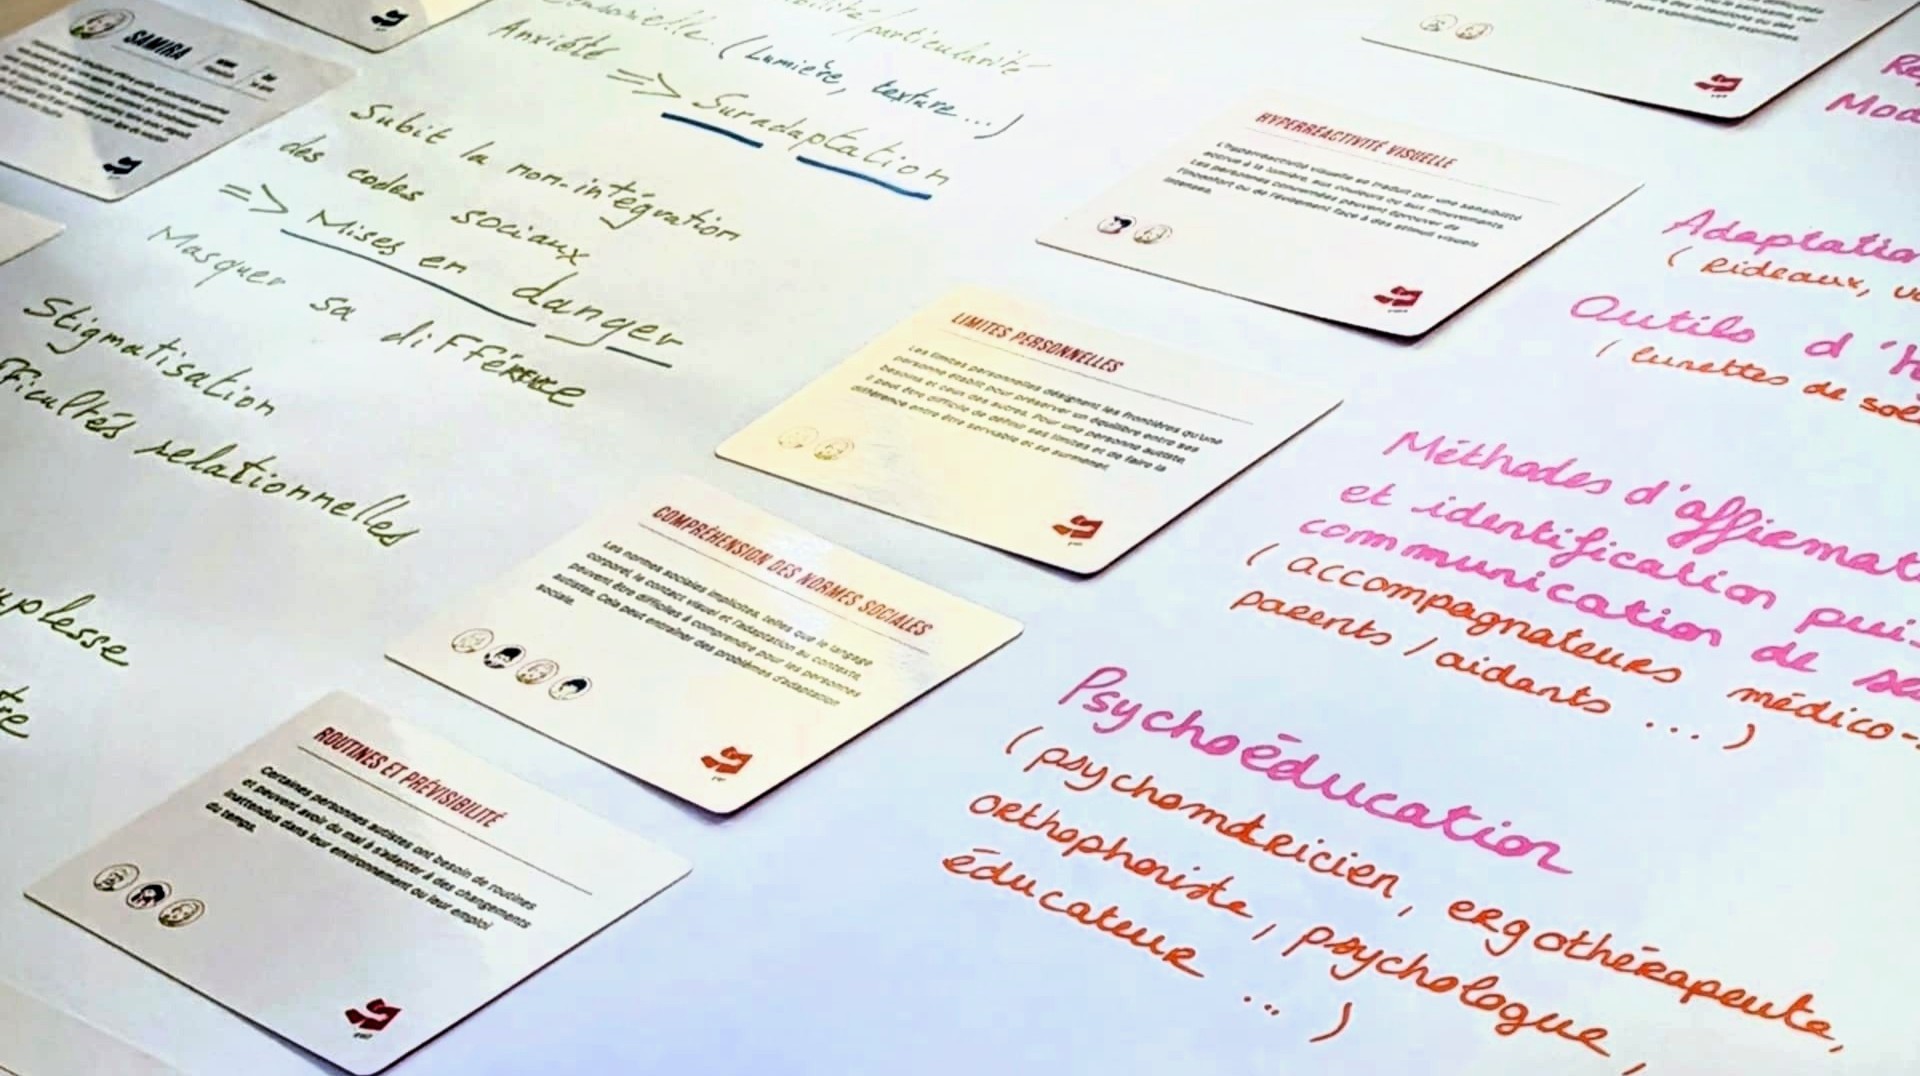 SAMIRA
sensorielle. (Lumière, texture...)
/particularité
Anxiété => Suradaptation
Subit la non-intégration
des codes sociaux
=> Mises en danger
Masquer sa différence
Stigmatisation
relationnelles
HYPERRÉACTIVITÉ VISUELLE
L'hyperréactivité visuelle se traduit par une sensibilité
accrue à la lumière, aux couleurs ou aux mouvements.
Les personnes concernées peuvent éprouver de
l'inconfort ou de l'évitement face à des stimuli visuels
intenses.
LIMITES PERSONNELLES
Les limites personnelles désignent les frontières qu'une
personne établit pour préserver un équilibre entre ses
besoins et ceux des autres. Pour une personne autiste,
il peut être difficile de définir ses limites et de faire la
différence entre être serviable et se surmener.
COMPRÉHENSION DES NORMES SOCIALES
Les normes sociales implicites, telles que le langage
corporel, le contact visuel et l'adaptation au contexte,
peuvent être difficiles à comprendre pour les personnes
autistes. Cela peut entraîner des problèmes d'adaptation
sociale.
ROUTINES ET PRÉVISIBILITÉ
Certaines personnes autistes ont besoin de routines
et peuvent avoir du mal à s'adapter à des changements
inattendus dans leur environnement ou leur emploi
du temps.
( Rideaux,
Outils d'
( lunettes de
Méthodes
et identification
communication de
( accompagnateurs médico-
parents / aidants ... )
Psychoéducation
( psychomotricien, ergothérapeute,
orthophoniste, psychologue,
éducateur ... )